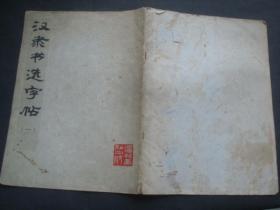 汉隶书选字帖
(一)